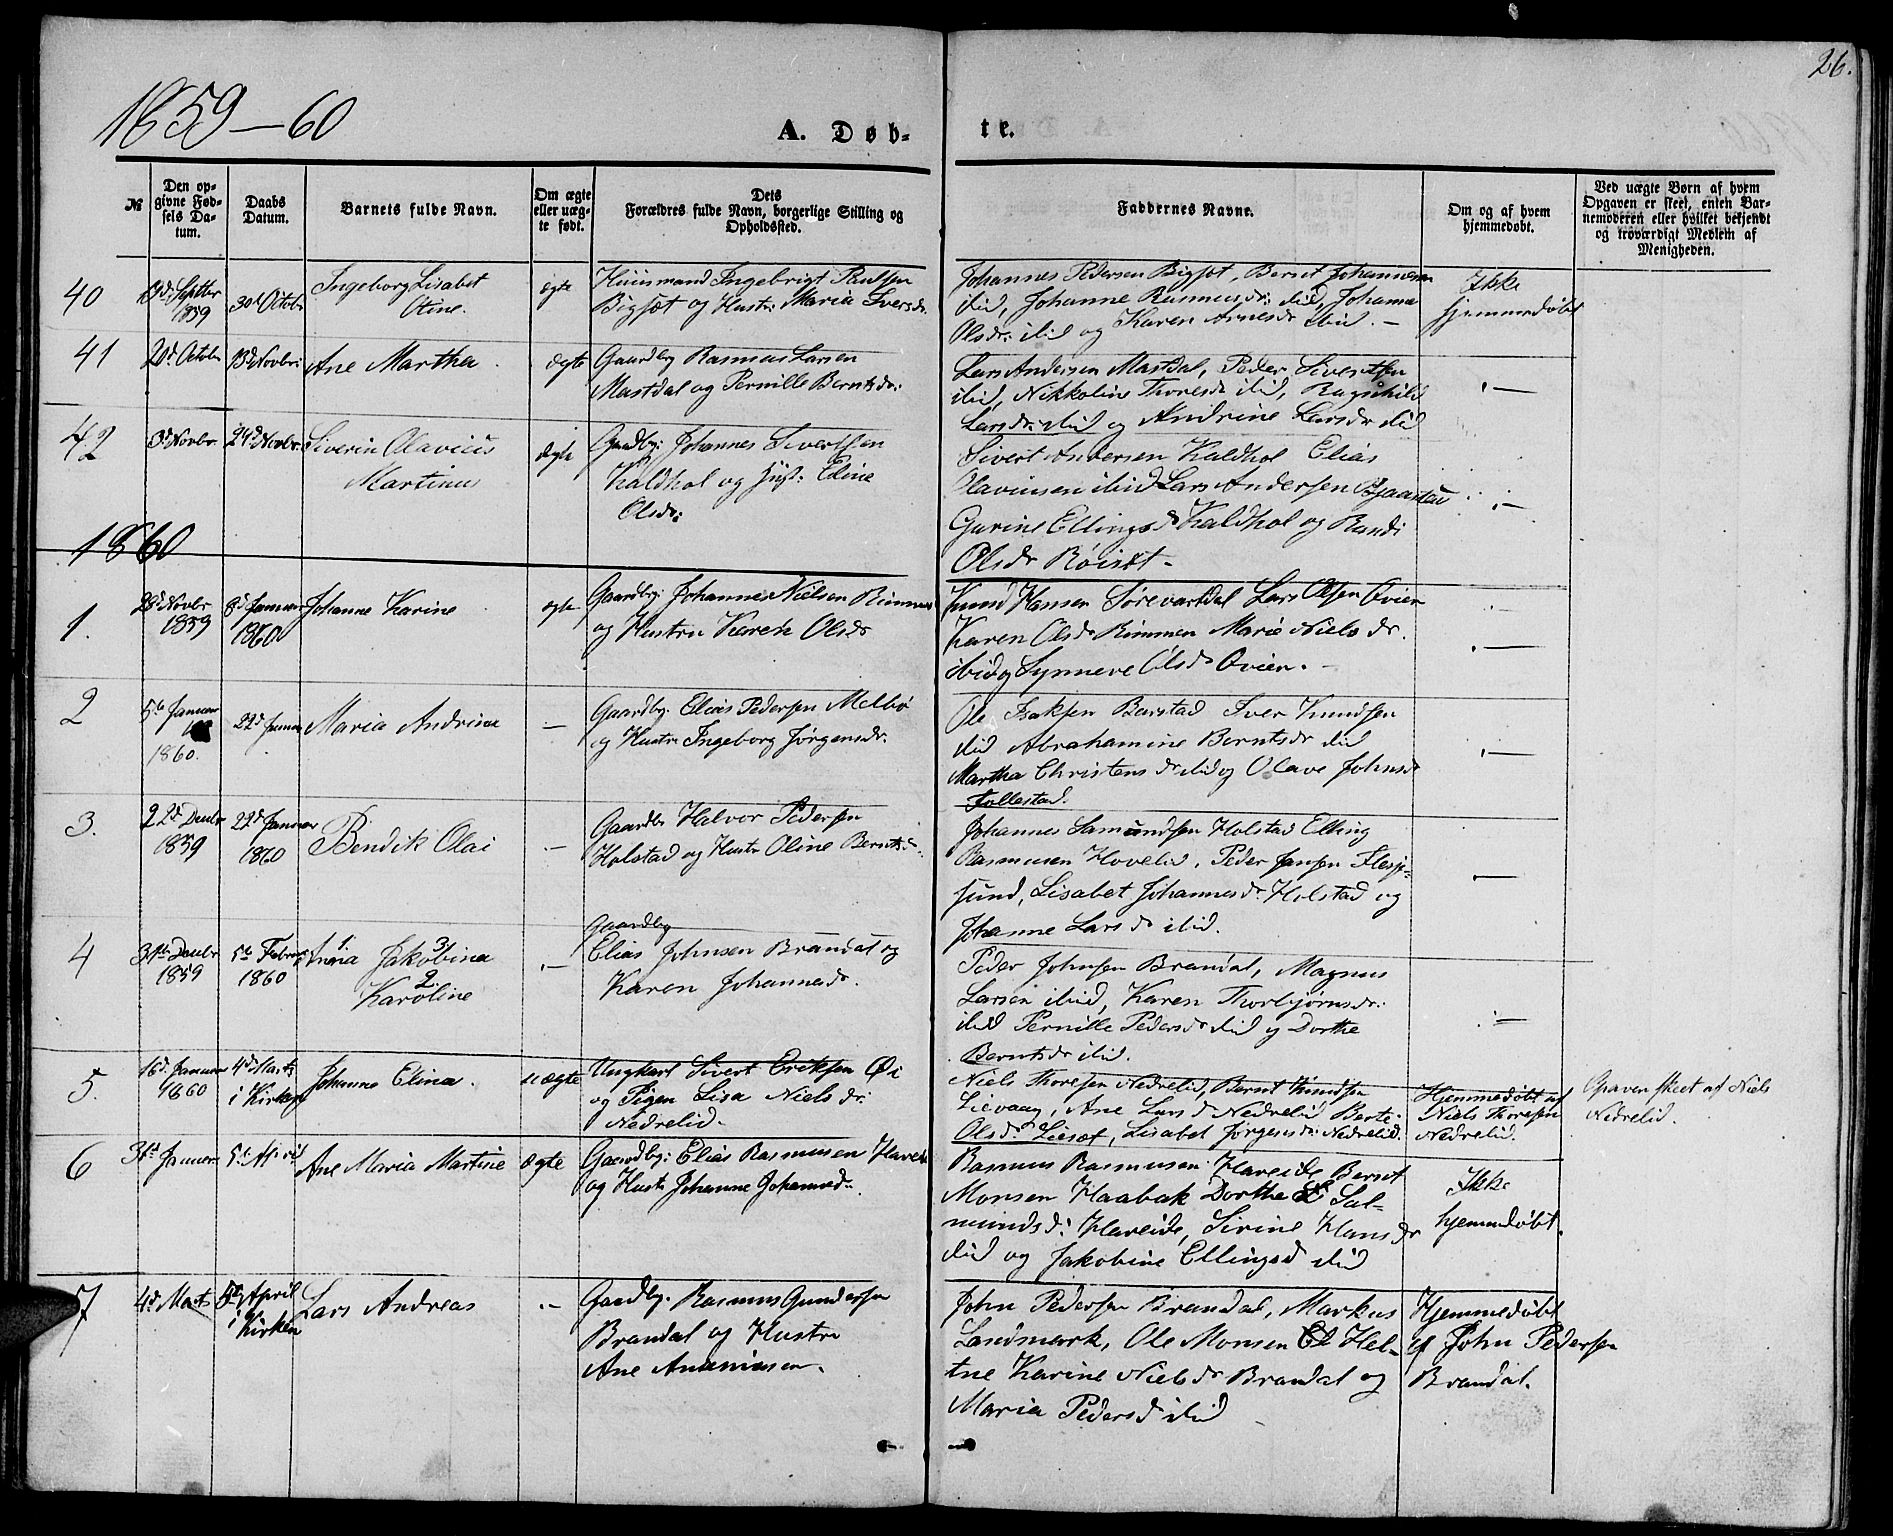 26.
1859-60
A. Døb-
te.
№
Den op-
givne Fød-
sels Da-
tum.
Daabs
Datum.
Barnets fulde Navn.
Om ægte
eller uæg-
te født.
Dets
Forældres fulde Navn, borgerlige Stilling og
Opholdssted.
Faddernes Navne.
Om og af hvem
hjemmedøbt.
Ved uægte Børn af hvem
Opgaven er skeet, enten Bar-
nemoderen eller hvilket bekjendt
og troværdigt Medlem af
Menigheden.
40
Septbr
1859
30d Octobr
Ingeborg Lisabet
Oline.
ægte
Huusmand Ingebrigt Paulsen
Bigset og Hustr: Maria Iversdr.
Johannes Pedersen Bigset, Bernt Johannesen
ibid, Johanne Rasmusdr: ibid, Johanne
Olsdr: ibid og Karen Arnesdr ibid. -
Ikke
hjemmedøbt
41
20d. Octobr
13d Novbr:
Ane Martha
ægte
Gaardbr Rasmus Larsen
Mastdal og Pernille Berntsdr:
Lars Andersen Mastdal, Peder Sivertsen
ibid, Nikkoline Thoresdr ibid, Ragnhild
Larsdr: ibid og Andrine Larsdr ibid
42
3d Novbr
24d Novbr
Siverin Olavius
Martinus
ægte
Gaardbr: Johannes Sivertsen
Kaldhol og Hust: Eline
Olsdr:
Sivert Andersen Kaldhol Elias
Olavinsen ibid Lars Andersen Bjaastad
Gurine Ellingsdr Kaldhol og Randi
Olsdr Røiset -
1860
1.
28d Novbr
1859
8d Januar
1860
Johanne Karine
ægte
Gaardbr: Johannes Nielsen Rimmen
og Hustru Karen Olsdr
Knud Hansen Sørevartdal Lars Olsen Øvien
Karen Olsdr Rimmen Marie Nielsdr.
ibid og Synneve Olsdr Øvien. -
2
5te Januar
1860.
22d Januar
Maria Andrine
-
Gaardbr: Elias Pedersen Melbø
og Hustr Ingeborg Jørgensdr.
Ole Isaksen Barstad Iver Knudsen
ibid Abrahamine Berntsdr ibid
Martha Christensdr ibid og Olave Johnsdr
Tollestad.
3.
22d Decbr
1859
22d Januar
1860
Bendik Olai
-
Gaardbr Halvor Pedersen
Holstad og Hustr Oline Berntsdr:
Johannes Samundsen Holstad Elling
Rasmusen Hovelid, Peder Jansen Flesje-
sund, Lisabet Johannesdr: Holstad og
Johanne Larsdr ibid.
4
31te Decbr
1859
5te Februar
1860
1. 3.
Anna Jakobina
2.
Karoline
-
Gaardbr
Elias Johnsen Brandal og
Karen Johannesdr.
Peder Johnsen Brandal, Magnus
Larsen ibid, Karen Thorbjørnsdr:
ibid Pernille Pedersdr ibid og Dorthe
Berntsdr ibid.
5.
16d. Januar
1860
4d Marts
i Kirken
Johanne Elina.
uægte
Ungkarl Sivert Eriksen Øi
og Pigen Lisa Nielsdr:
Nedrelid.
Niels Thoresen Nedrelid, Bernt Knudsen
Lievaag, Ane Larsdr Nedrelid Berte
Olsdr: Lieset, Lisabet Jørgensdr: Nedrelid.
Hjemmedøbt af
Niels Thoresen
Nedrelid.
Opaven skeet af Niels
Nedrelid.
6
31d Januar
5te April
Ane Maria Martine
ægte
Gaardbr: Elias Rasmusen Hareide
og Hustr Johanne Johannesdr.
Rasmus Rasmusen Hareide Bernt
Monsen Haabak Dorthe Sal-
mundsdr: Hareide, Sirine Hansdr
ibid og Jakobine Ellingsd ibid
Ikke
hjemmedøbt.
7
4d Marts
5te April
i Kirken
Lars Andreas
-
Gaardbr. Rasmus Gundersen
Brandal og Hustru
Ane Ananiasen.
John Pedersen Brandal, Markus
Landmark, Ole Monsen Hel-
tne Karine Nielsdr Brandal og
Maria Pedersd ibid
Hjemmedøbt
af John Pedersen
Brandal.